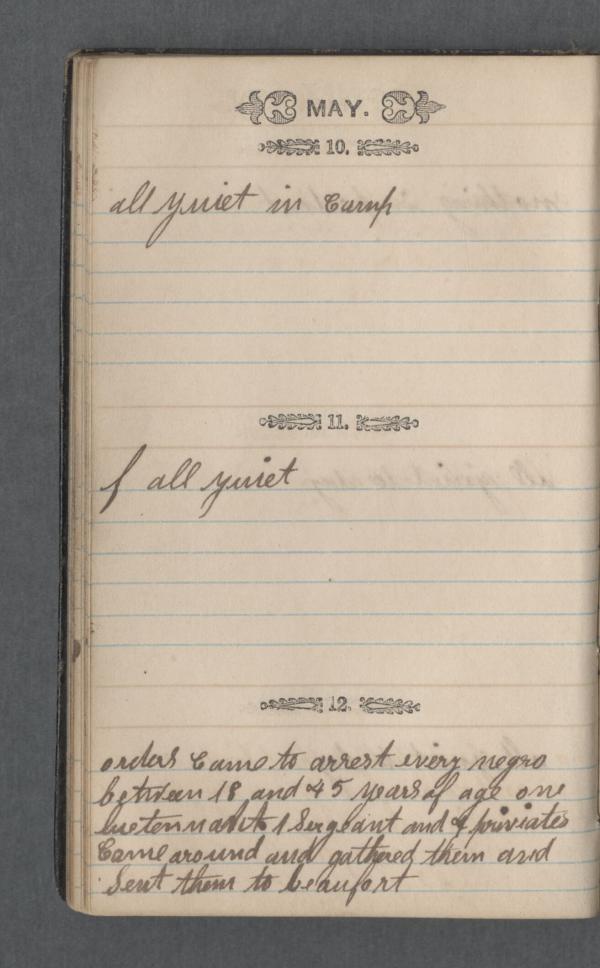 MAY.
10.
all quiet in Camp
11.
all quiet
12.
orders Came to arrest every negro
between 18 and 45 years of age one
1 Sergeant and 4 priviates
Came around and gathered them and
Sent them to beaufort